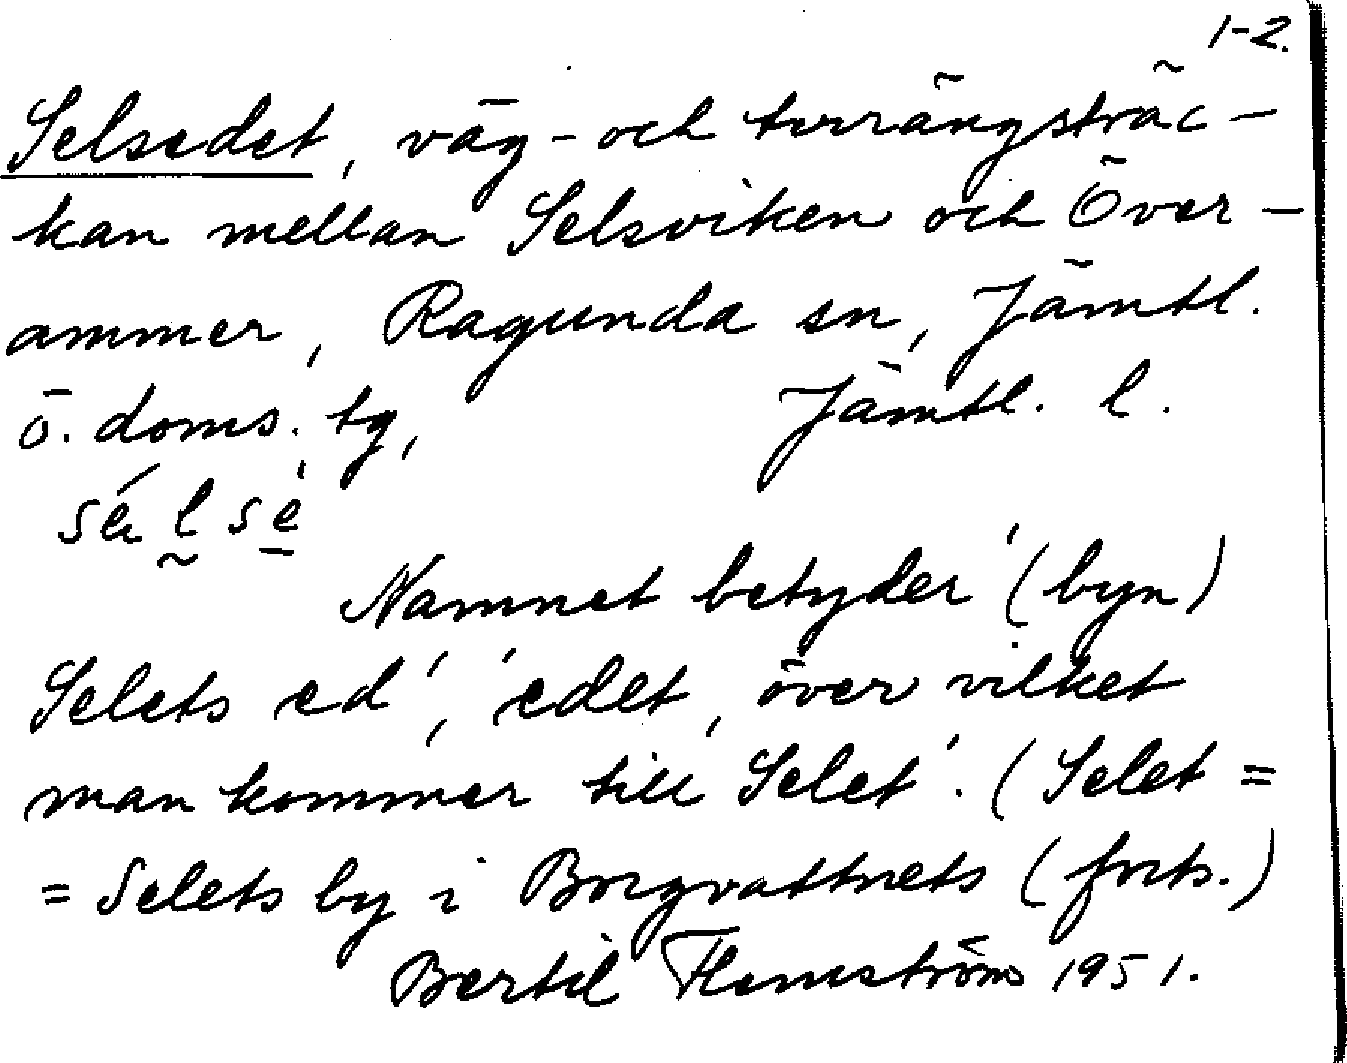 1-2.
Selsedet, väg- och terrängsträc-
kan mellan Selsviken och Över-
ammer, Ragunda sn, Jämtl.
ö. doms. tg, Jämtl. l.
Namnet betyder '(byn)
Selets ed', 'edet, över vilket
man kommer till Selet'. (Selet =
= Selets by i Borgvattnets (forts.)
Bertil Flemström 1951.